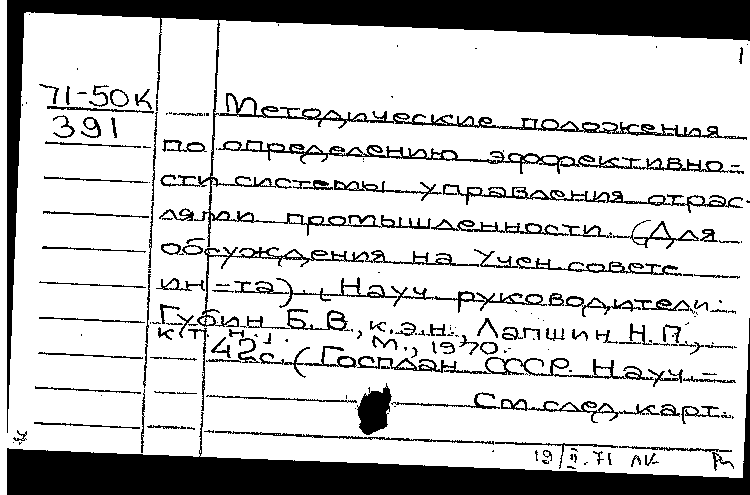 1
71-50К Методические положения
391
по определению эффективно-
сти системы управления отрас-
лями промышленности. (Для
обсуждения на Учен. совете
ин-та). [Науч. руководители:
Губин Б. В., к.э.н., Лапшин Н.П.,
к.т.н.]. М., 1970.
42с. (Госплан СССР. Науч.-
См. след. карт.
19/II.71 ЛК